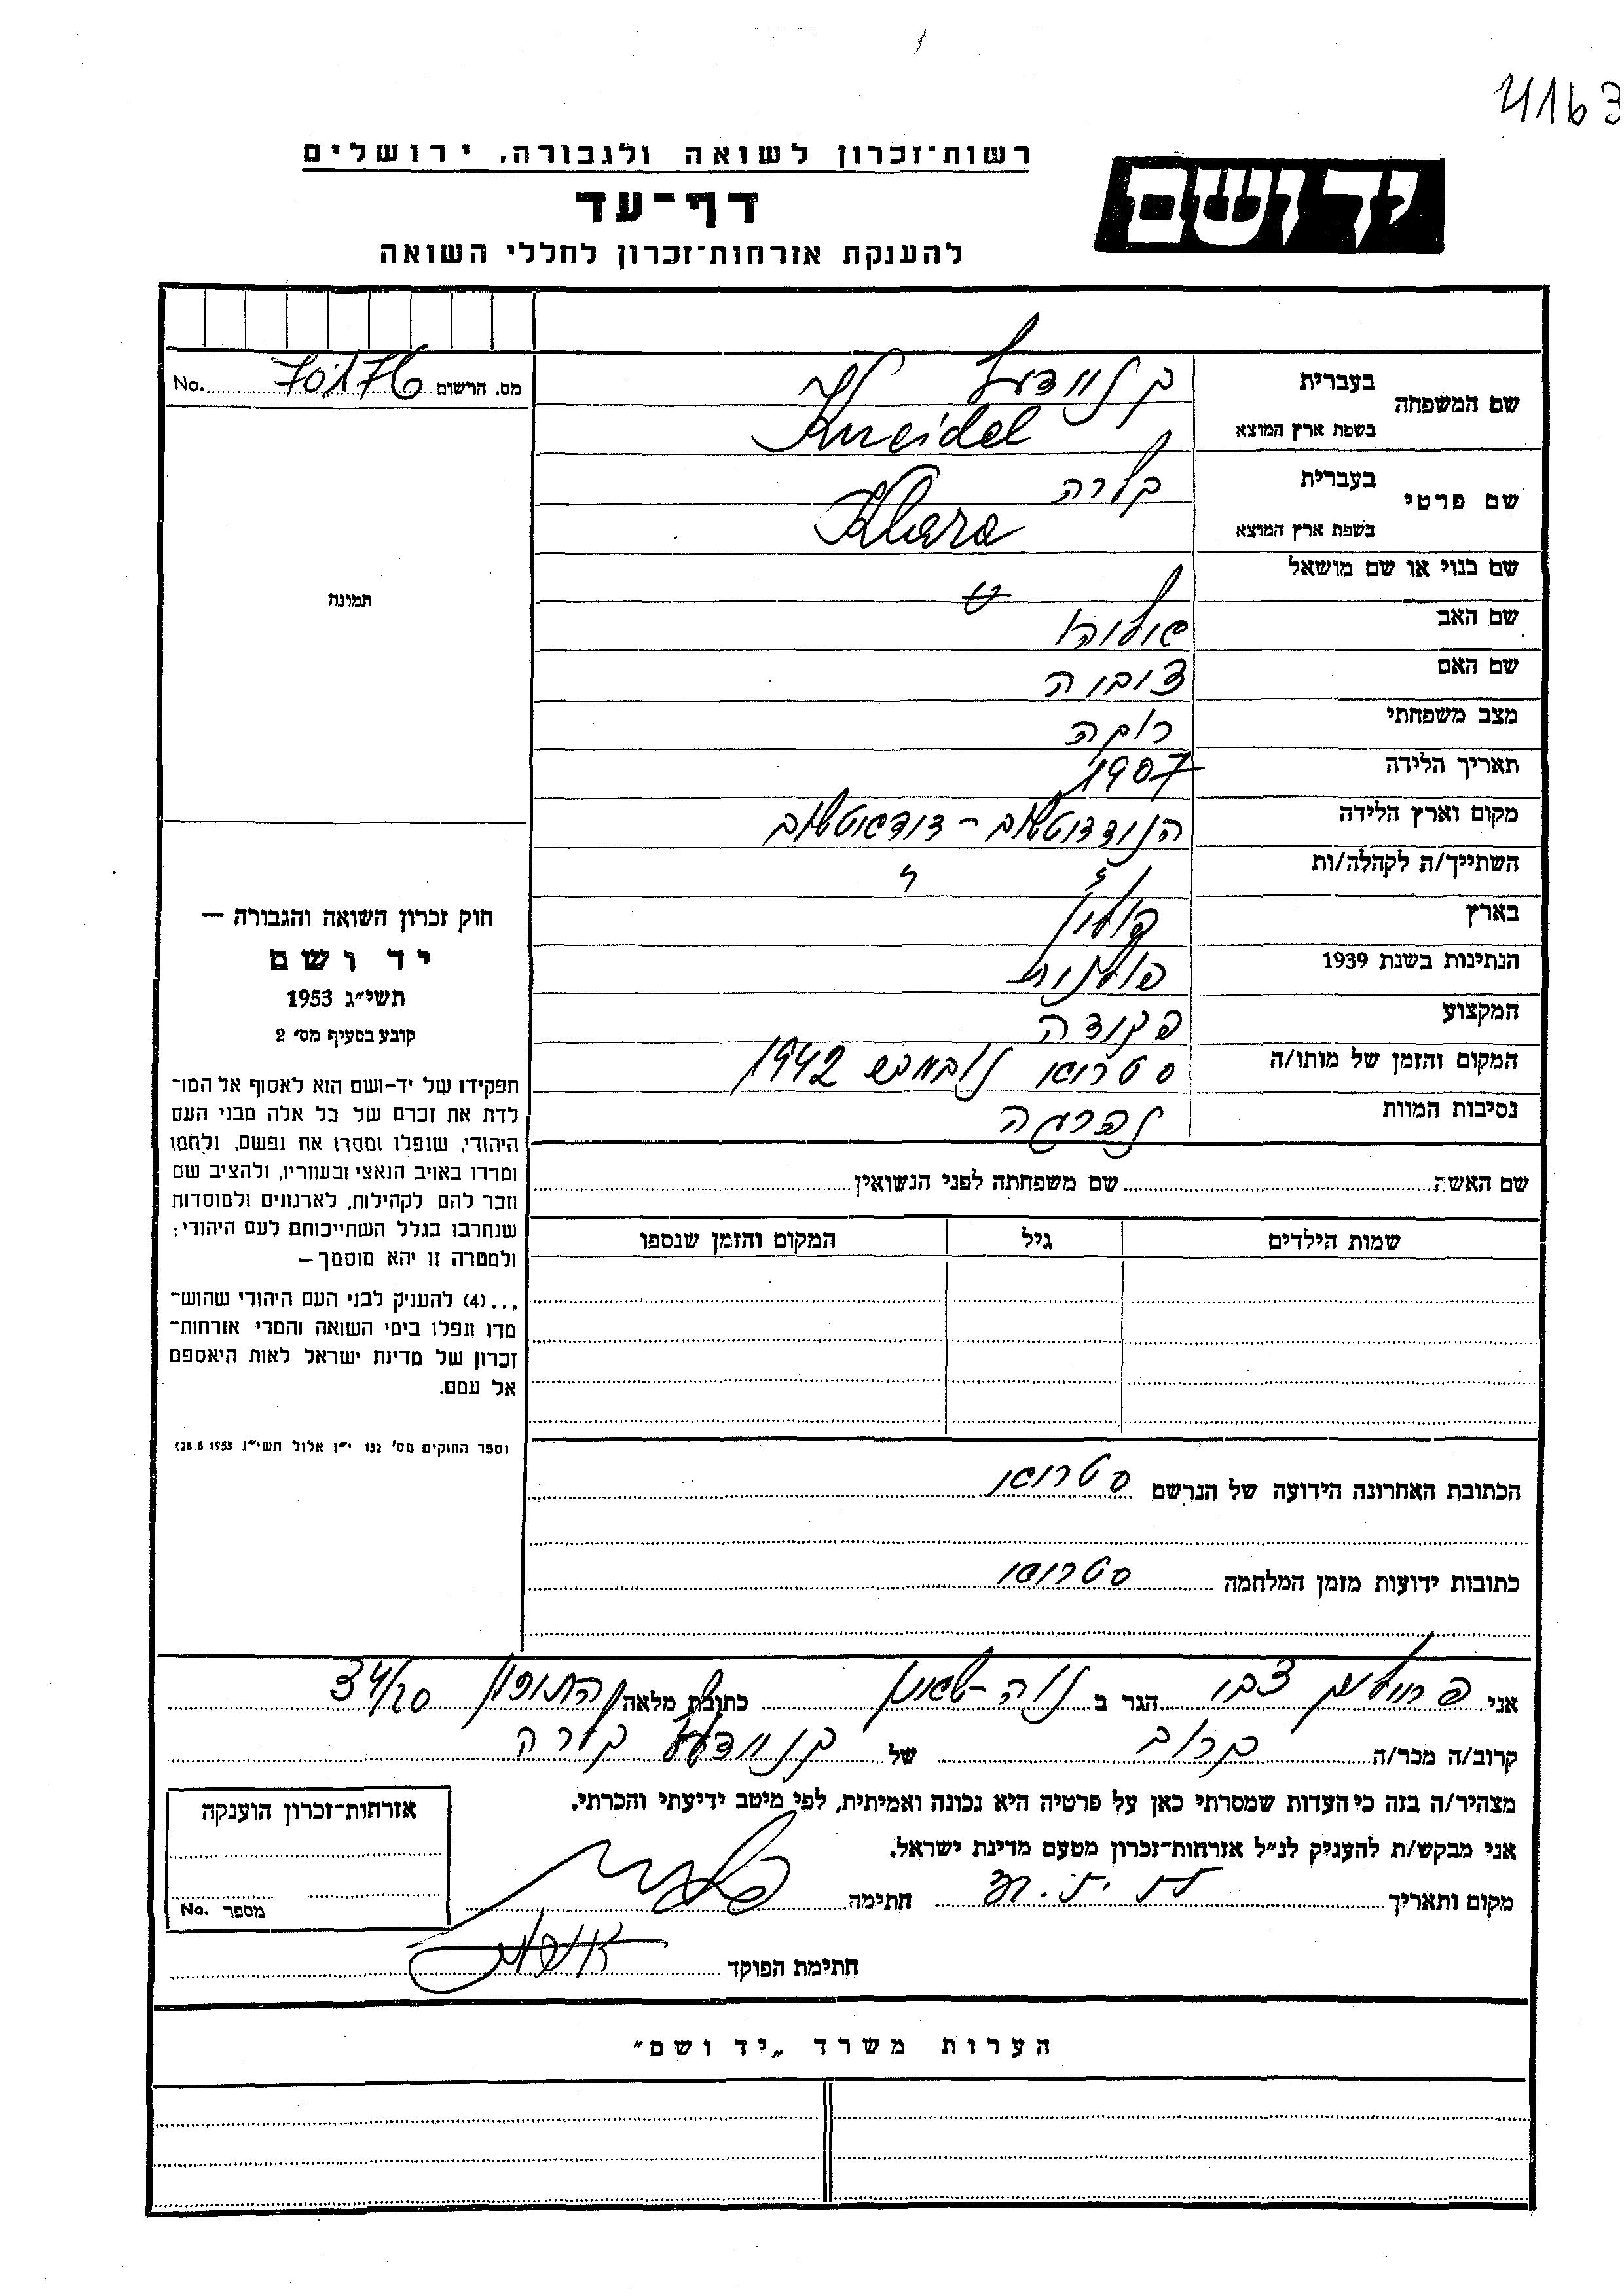 4163
רשות־זכרון לשואה ולגבורה, ירושלים
יד ושם
דף־עד
להענקת אזרחות־זכרון לחללי השואה
מס. הרשום 70176 No.
שם המשפחה בעברית קניידעל
בשפת ארץ המוצא Kneidel
שם פרטי בעברית קלרה
בשפת ארץ המוצא Klara
שם כנוי או שם מושאל
שם האב
שם האם
מצב משפחתי רוקה
תאריך הלידה 1907
מקום וארץ הלידה
השתייך/ה לקהלה/ות
בארץ פולין
הנתינות בשנת 1939 פולנית
המקצוע פקידה
המקום והזמן של מותו/ה 1942
נסיבות המוות נהרגה
תמונה
חוק זכרון השואה והגבורה —
יד ושם
תשי״ג 1953
קובע בסעיף מס׳ 2
תפקידו של יד-ושם הוא לאסוף אל המו־
לדת את זכרם של כל אלה מבני העם
היהודי, שנפלו ומסרו את נפשם, נלחמו
ומרדו באויב הנאצי ובעוזריו, ולהציב שם
וזכר להם לקהילות, לארגונים ולמוסדות
שנחרבו בגלל השתייכותם לעם היהודי;
ולמטרה זו יהא מוסמך —
...(4) להעניק לבני העם היהודי שהוש־
מדו ונפלו בימי השואה והמרי אזרחות־
זכרון של מדינת ישראל לאות היאספם
אל עמם.
(ספר החוקים מס׳ 132 י״ז אלול תשי״ג 28.8.1953)
שם האשה שם משפחתה לפני הנשואין
שמות הילדים גיל המקום והזמן שנספו
הכתובת האחרונה הידועה של הנרשם
כתובות ידועות מזמן המלחמה
אני צבי הגר ב נוה-שאנן כתובת מלאה התיכון 34/20
קרוב/ה מכר/ה קרוב של קניידעל קלרה
מצהיר/ה בזה כי העדות שמסרתי כאן על פרטיה היא נכונה ואמיתית, לפי מיטב ידיעתי והכרתי.
אני מבקש/ת להעניק לנ״ל אזרחות־זכרון מטעם מדינת ישראל.
מקום ותאריך חתימה
חתימת הפוקד
אזרחות־זכרון הוענקה
מספר No.
הערות משרד „יד ושם״